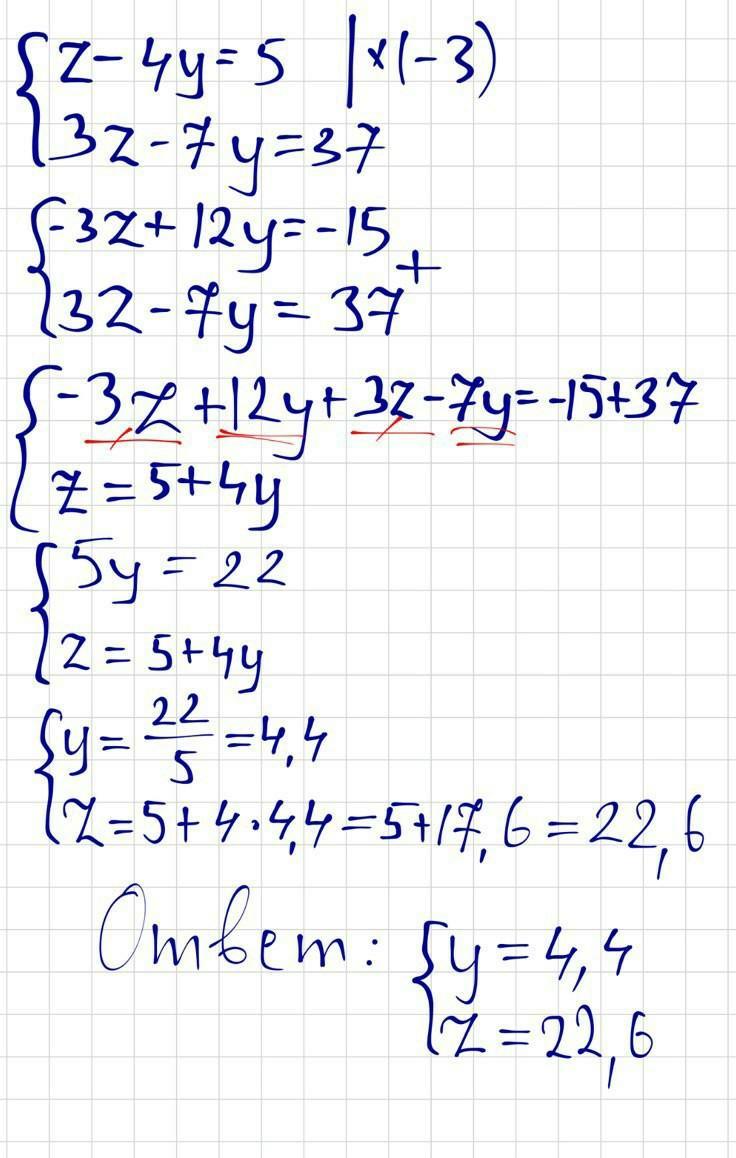 z - 4y = 5 |×(-3)
3z - 7y = 37
-3z + 12y = -15
+
3z - 7y = 37
-3z + 12y + 3z - 7y = -15 + 37
z = 5 + 4y
5y = 22
z = 5 + 4y
y = 22/5 = 4,4
z = 5 + 4·4,4 = 5 + 17,6 = 22,6
Ответ: y = 4,4
z = 22,6